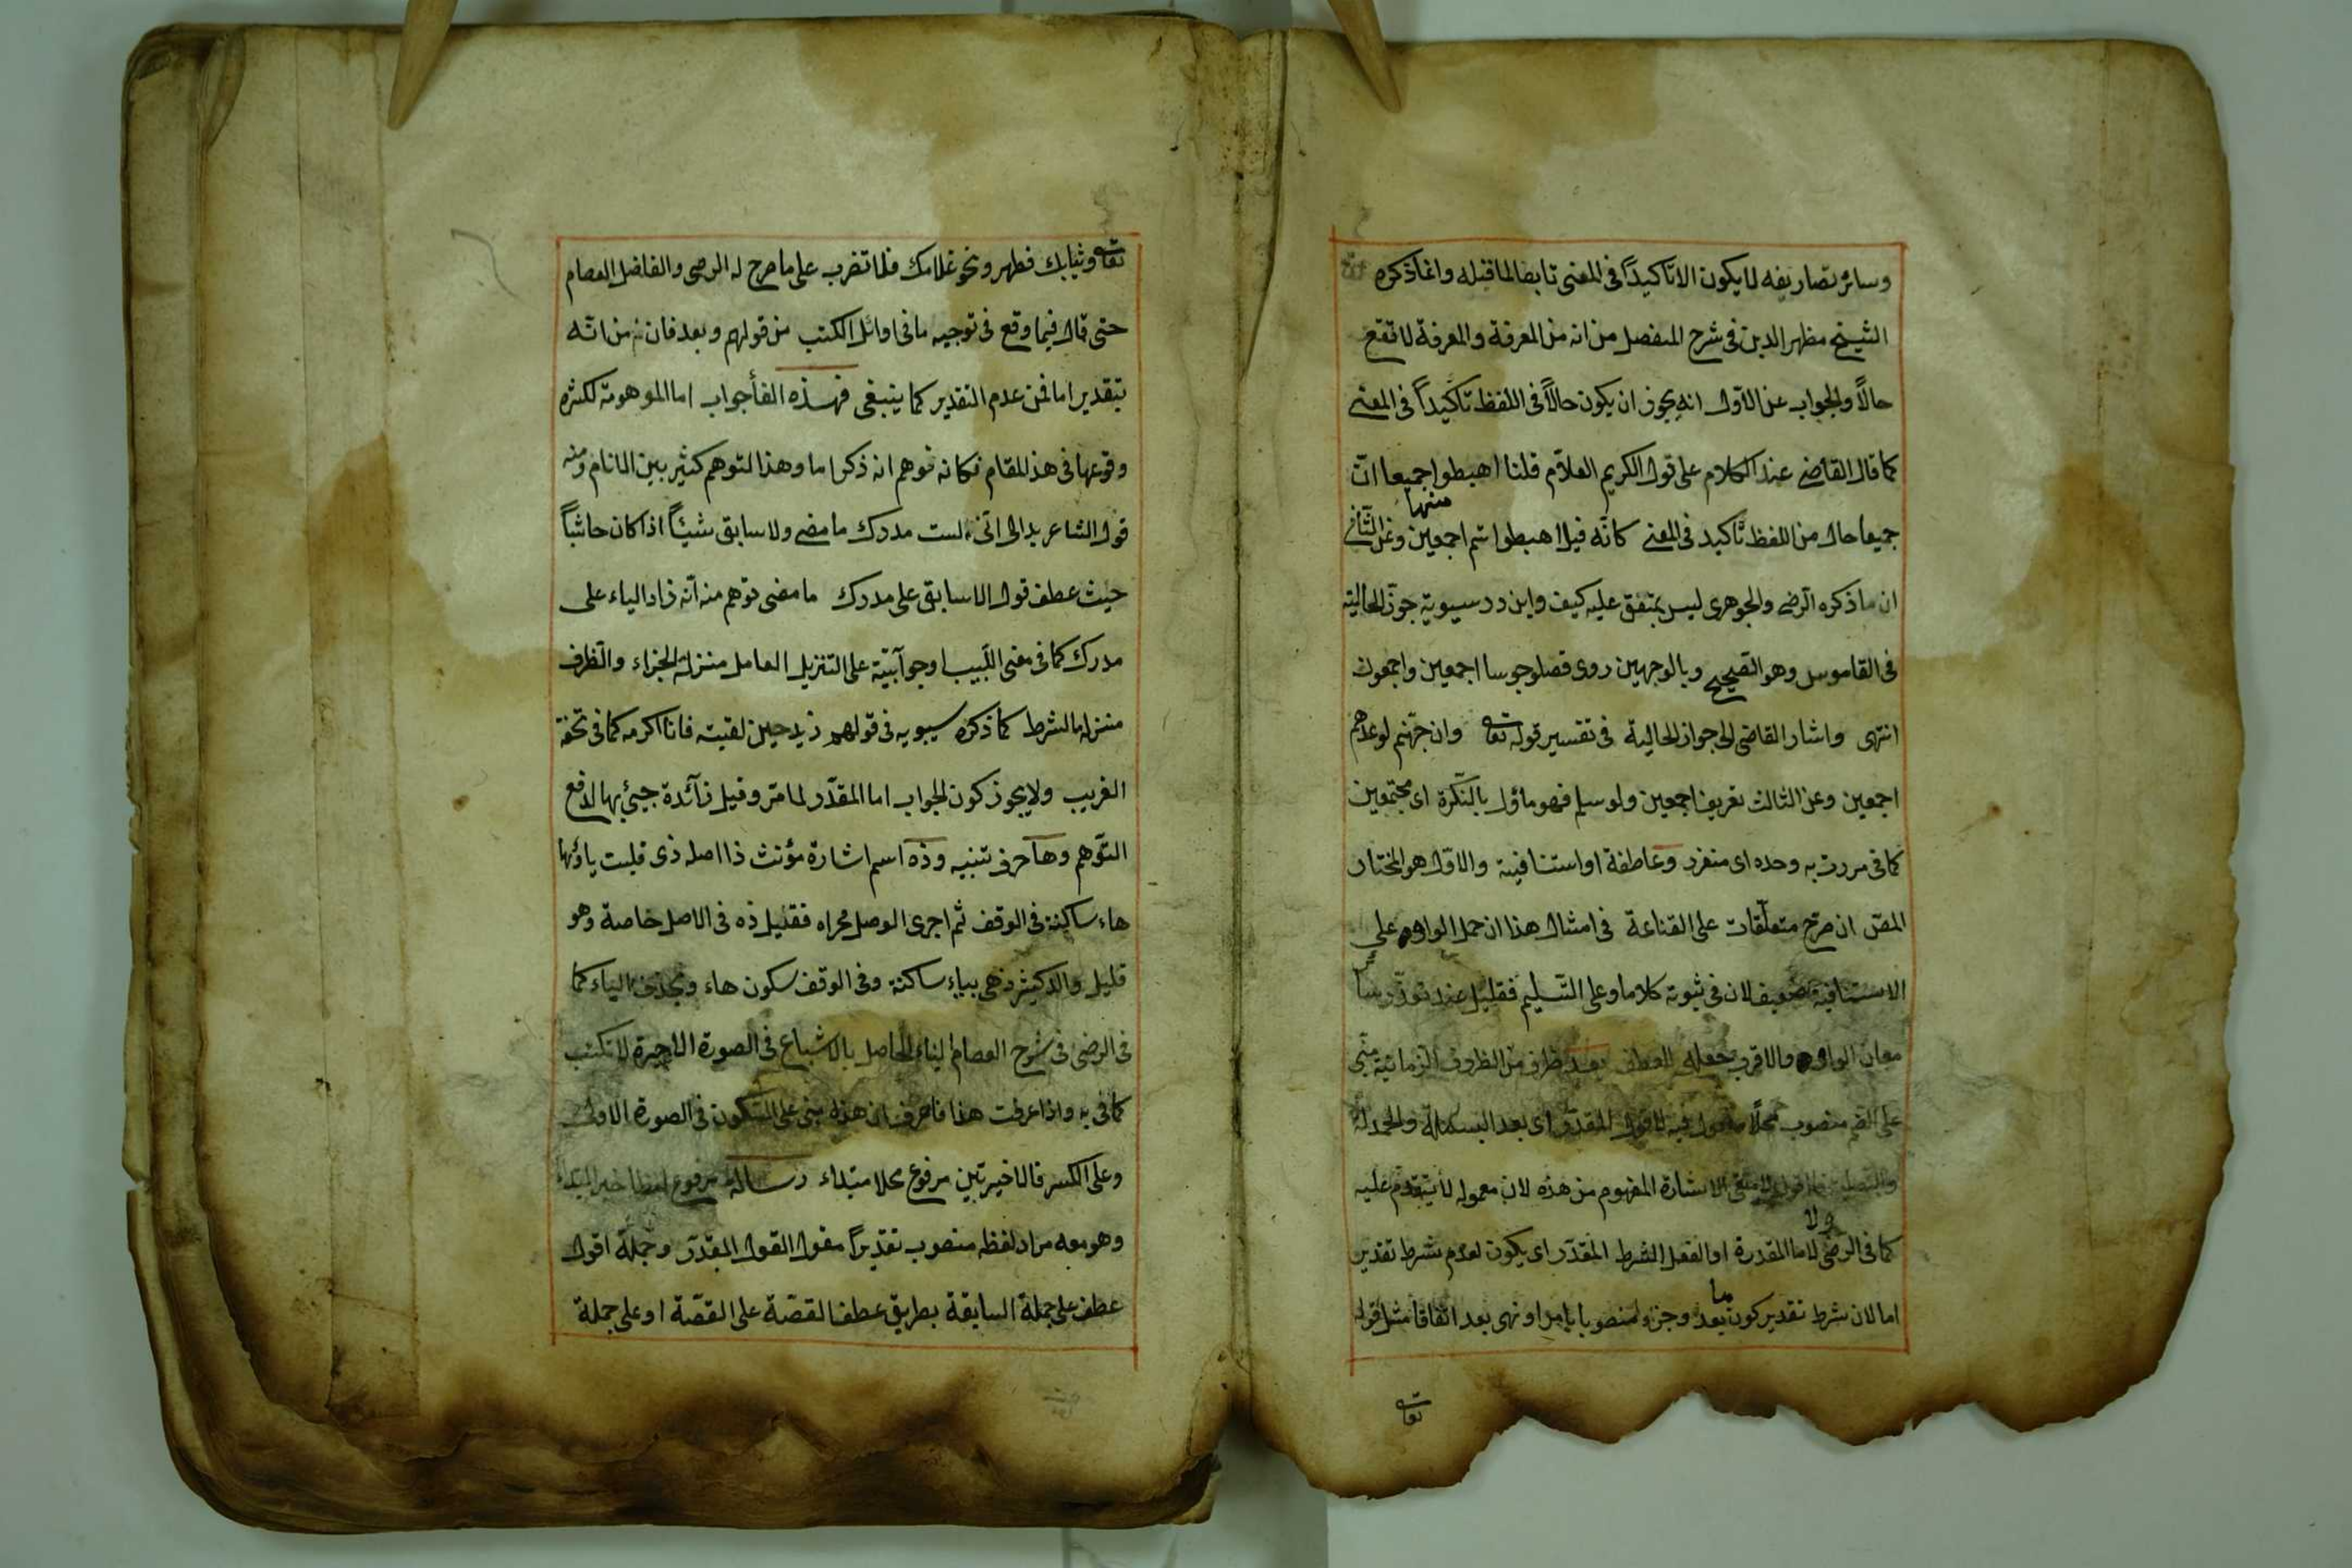 وسائر تصاريفه لا يكون الا تاكيداً فى المعنى تابعا لما قبله وانما ذكره
الشيخ مظهر الدين فى شرح المفصل من انه من المعرفة والمعرفة لا تقع
حالاً والجواب عن الاول انه يجوز ان يكون حالاً فى اللفظ تاكيداً فى المعنى
كما قال القاضى عند الكلام على قول الكريم العلاّم قلنا اهبطوا منها جميعا انّ
جميعا حال من اللفظ تاكيد فى المعنى كانّه قيل اهبطوا انتم اجمعين وعن الثّانى
ان ما ذكره الرّضى والجوهرى ليس بمتفق عليه كيف وابن درسيوية جوّز الحالية
فى القاموس وهو الصّحيح وبالوجهين روى فصلو جلوسا اجمعين واجمعون
انتهى واشار القاضى الى جواز الحالية فى تفسير قوله تعالى وان جهّنم لموعدهم
اجمعين وعن الثالث تعريف اجمعين ولو سلم فهو ماؤل بالنّكرة اى مجتمعين
كما فى مررت به وحده اى منفرد وعاطفة او استنافية والاوّل هو المختار
المص ان صرّح متعلّقات على القناعة فى امثال هذا ان حمل الواو على
الاستنافية ضعيف لان فى ثبوته كلاما وعلى التّسليم فقليل عند
معان الواو والاقرب جعله للعطف بعد ظرف من الظروف الزمانية مبنى
على الضم منصوب محلاً مفعول فيه لاقول المقدّر اى بعد البسملة والحمدلة
الاشارة المفهوم من هذه لان معموله لا يتقدّم عليه
كما فى الرضى ولا لاما المقدرة او الفعل الشرط المقدّر اى يكون لعدم شرط تقدير
اما لان شرط تقدير كون ما بعد وجزو لمنصوبا بامر او نهى بعد اتفاقا مثل قوله
تعالى
تعالى وثيابك فطهر ونحو غلامك فلا تضرب على ما صرح له الرضى والفاضل العصام
حتى قال فيما وقع فى توجيه ما فى اوائل الكتب من قولهم وبعد فان من انّه
بتقدير اما فمن عدم التقدير كما ينبغى فهذه الفأ جواب اما الموهومة لكثره
وقوعها فى هذ المقام فكانه توهم انه ذكر اما وهذا لتوهم كثير بين الانام ومنه
قول الشاعر بدا لى انّى لست مدرك ما مضى ولا سابق شيئاً اذا كان جائياً
حيث عطف قول الاسابق على مدرك ما مضى توهم منه انّه زاد الباء على
مدرك كما فى مغنى اللّبيب او جوآبيّة على التنزيل العامل منزلة الجزاء والظرف
منزلة الشرط كما ذكره سيبويه فى قولهم زيد حين لقيته فانا اكرمه كما فى تحفة
الغريب ولا يجوز كون الجواب اما المقدّر لما مرّ وقيل زآئدة جيئ بها لدفع
التوّهم وها حرف تنبيه وذه اسم اشارة مؤنث ذا اصله ذى قلبت ياؤها
هاء ساكنة فى الوقف ثم اجرى الوصل مجراه فقيل ذه فى الاصل خاصة وهو
قليل والاكثر ذهى بياء ساكنة وفى الوقف سكون هاء وبحذف الياء كما
فى الرضى فى شرح العصام الياء الحاصل بالاشباع فى الصورة الاخيرة لا تكتب
كما فى به واذا عرفت هذا فاعرف ان هذه مبنى على السّكون فى الصورة الاولى
وعلى الكسر فالاخيرتين مرفوع محلا مبتداء رسالة مرفوع لفظا خبر المبتداء
وهو معه مراد لفظه منصوب تقديراً مقول القول المقدّر وجملة اقول
عطف على جملة السابقة بطريق عطف القصّة على القصّة او على جملة